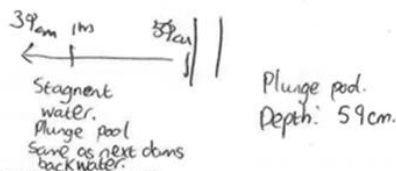 39cm 1m 59cm
Stagnent
water.
Plunge pool
Same as next dams
backwater.
Plunge pool.
Depth: 59cm.